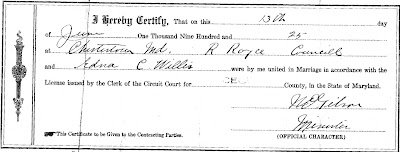 I Hereby Certify, That on this 13th day
of June One Thousand Nine Hundred and 25
at Chestertown Md. R Royce Councell
and Edna C. Willis were by me united in Marriage in accordance with the
License issued by the Clerk of the Circuit Court for County, in the State of Maryland.
Minister
(OFFICIAL CHARACTER)
This Certificate to be Given to the Contracting Parties.